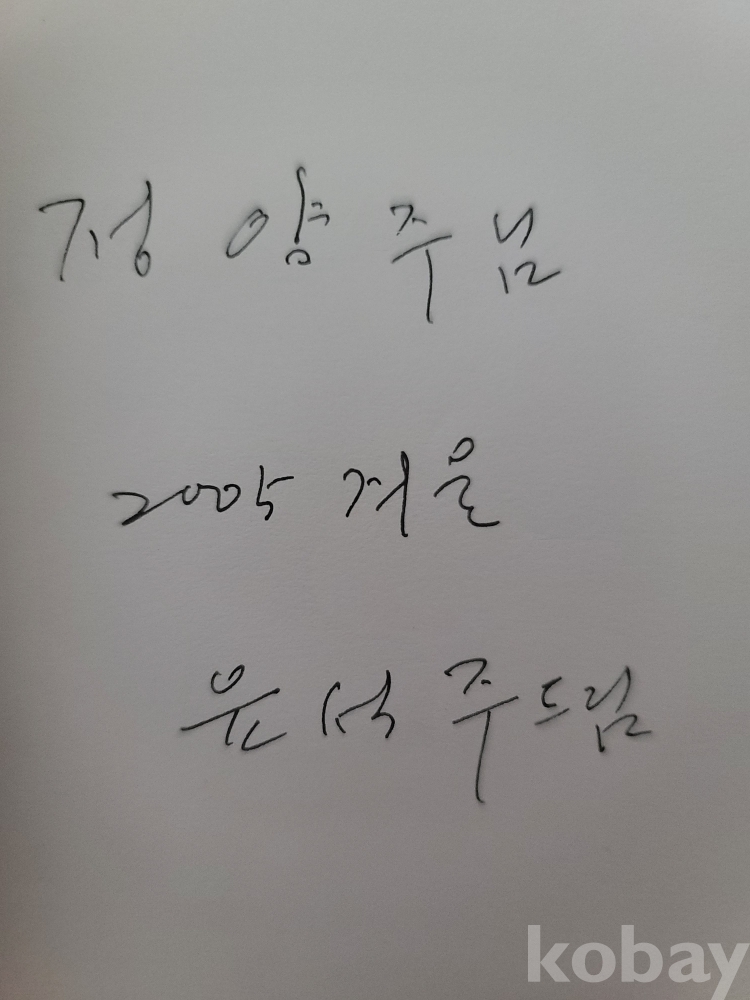 정양주님
2005 겨울
윤석주 드림
kobay